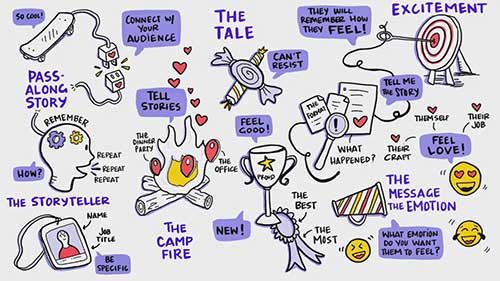 SO COOL!
CONNECT W/
YOUR
AUDIENCE
PASS-
ALONG
STORY
REMEMBER
REPEAT
REPEAT
REPEAT
HOW?
THE STORYTELLER
NAME
JOB
TITLE
BE
SPECIFIC
THE
TALE
CAN'T
RESIST
TELL
STORIES
THE
DINNER
PARTY
THE
OFFICE
THE
CAMP
FIRE
FEEL
GOOD!
PROUD
NEW!
THE
BEST
THE
MOST
THEY WILL
REMEMBER HOW
THEY FEEL!
EXCITEMENT
TELL ME
THE STORY
THE
FORMAT
WHAT
HAPPENED?
THEMSELF
THEIR
JOB
THEIR
CRAFT
FEEL
LOVE!
THE MESSAGE
THE EMOTION
WHAT EMOTION
DO YOU WANT
THEM TO FEEL?